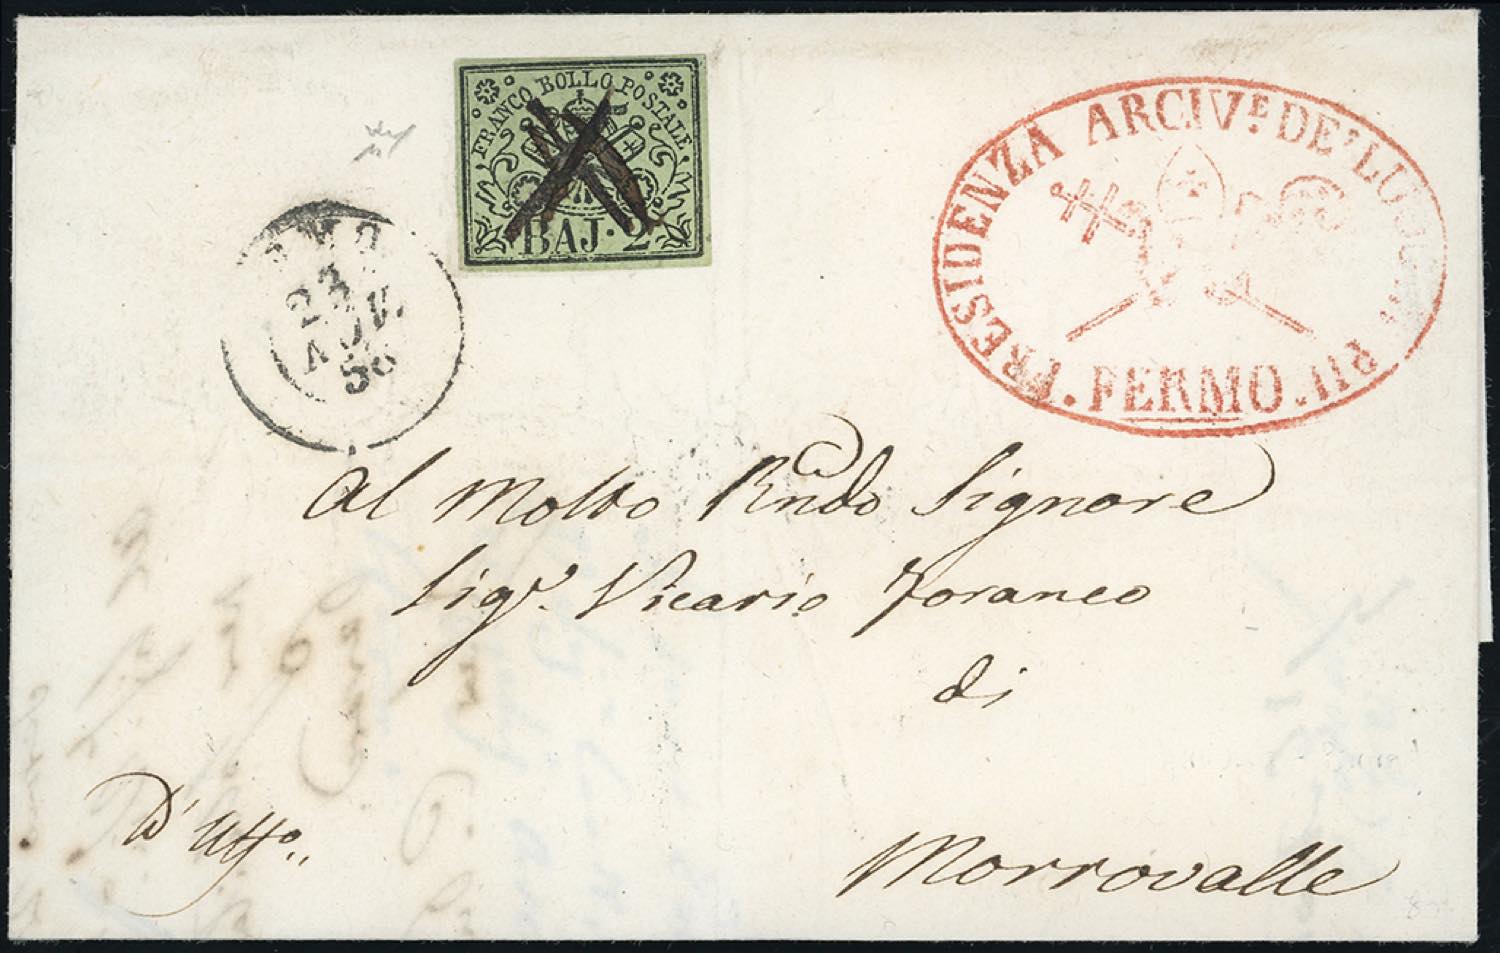 FRANCO BOLLO POSTALE
BAJ·2
23
56
PRESIDENZA ARCIV.E DE' PII
. FERMO .
Al Molto Rndo Signore
Sigr. Vicario Foraneo
di
Morrovalle
D'Uffo..